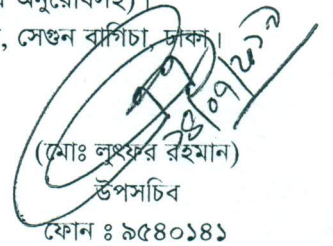 অনুরোধসহ)।
, সেগুন বাগিচা, ঢাকা।
(মোঃ লুৎফর রহমান)
উপসচিব
ফোন ঃ ৯৫৪০১৪১